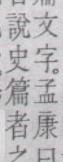 文字。孟康曰
說史篇者之